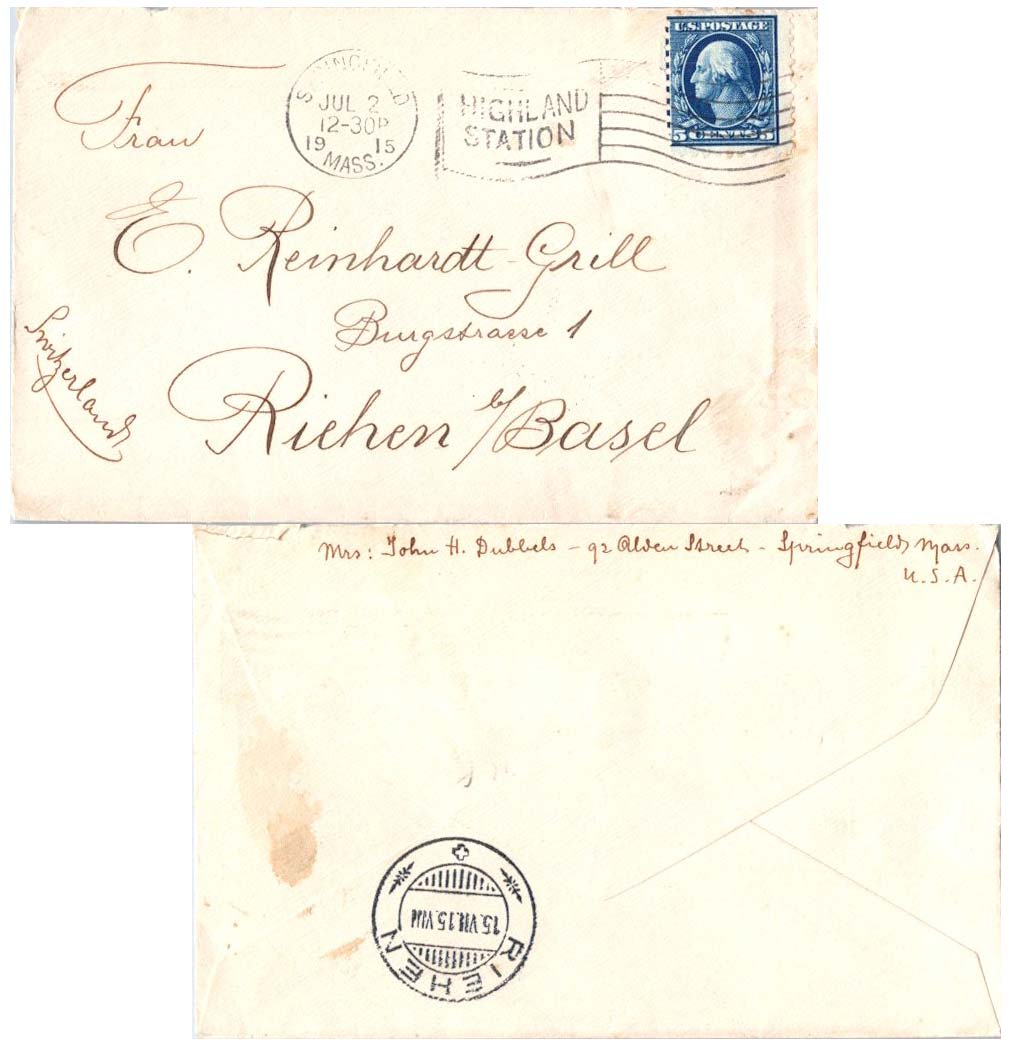 U.S.POSTAGE
5 CENTS 5
SPRINGFIELD
JUL 2
12-30P
19 15
MASS.
HIGHLAND
STATION
Frau
E. Reinhardt-Grill
Burgstrasse 1
Riehen b/Basel
Switzerland
Mrs: John H. Dubbels - 92 Alden Street - Springfield, Mass.
U.S.A.
15.VII.15.VIII
RIEHEN